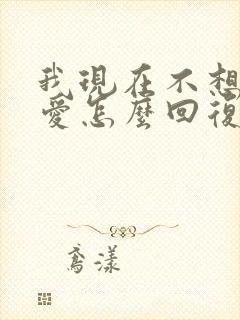 我現在不想
愛怎麼回復
鳶漾